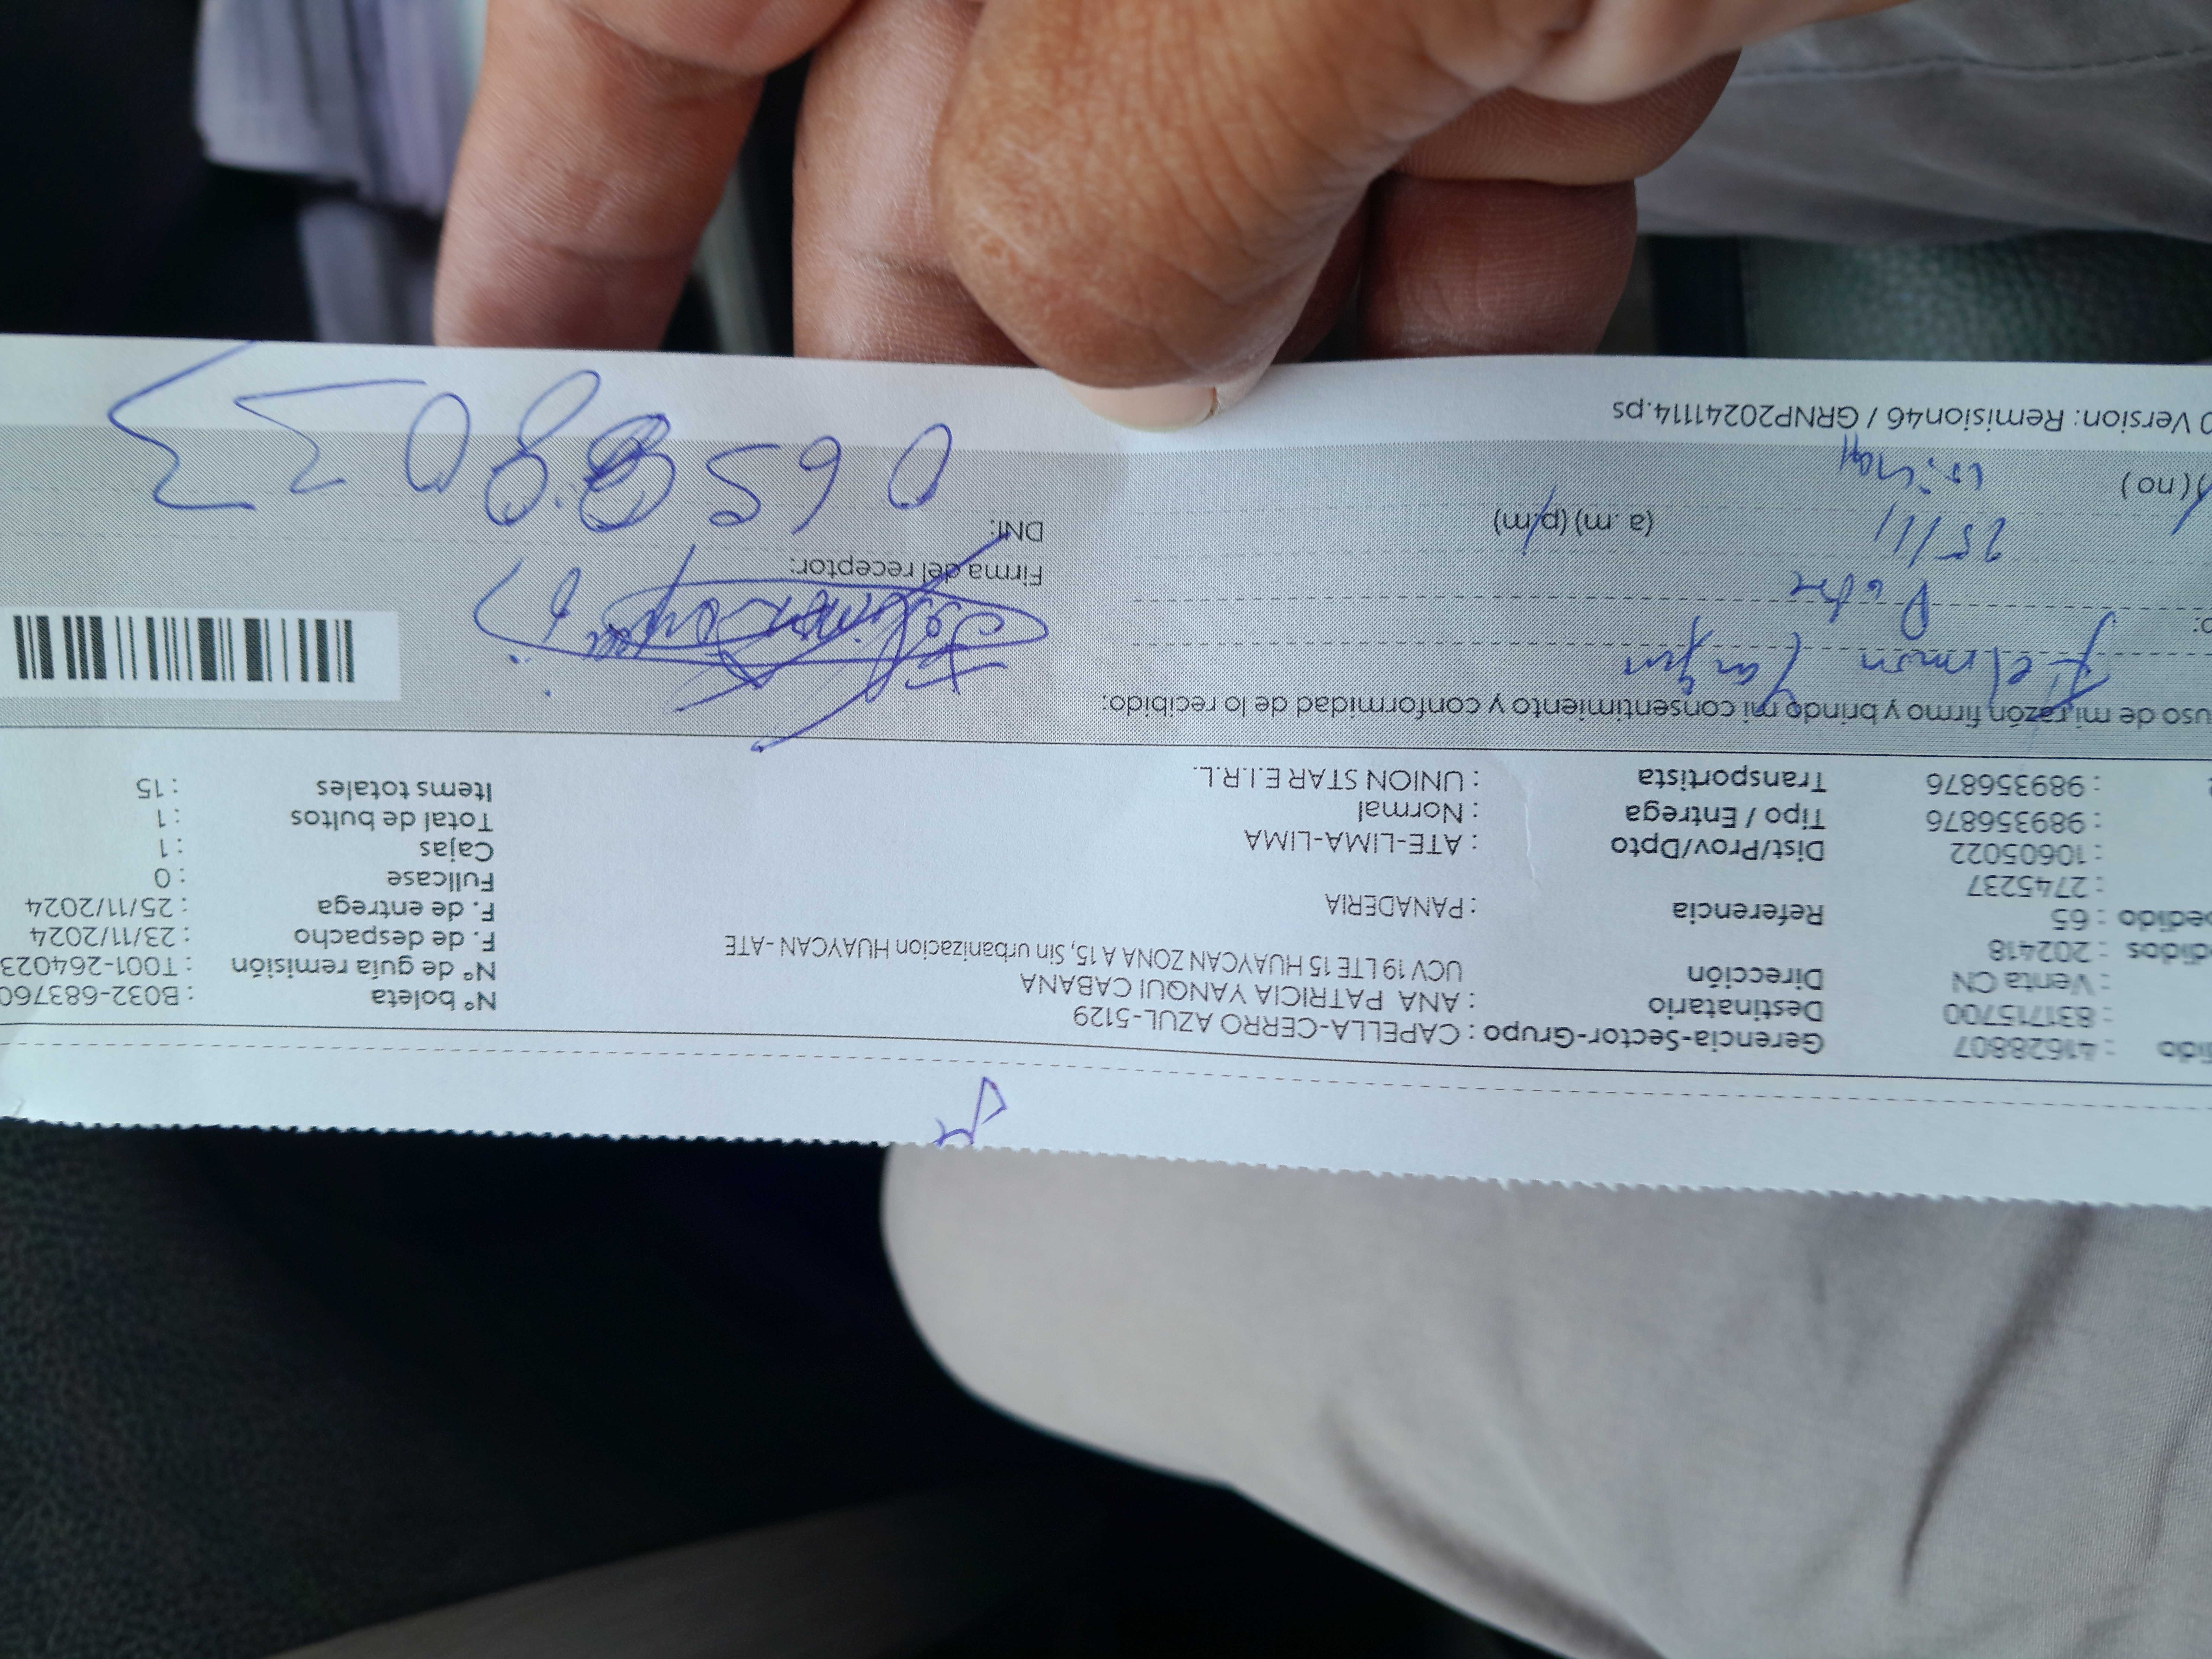 dido : 41628807 Gerencia-Sector-Grupo : CAPELLA-CERRO AZUL-5129
: 831715700 Destinatario : ANA PATRICIA YANQUI CABANA Nº boleta : B032-683760
: Venta CN Dirección UCV 19 LTE 15 HUAYCAN ZONA A 15, Sin urbanizacion HUAYCAN - ATE Nº de guía remisión : T001-264023
didos : 202418 F. de despacho : 23/11/2024
pedido : 65 Referencia : PANADERIA F. de entrega : 25/11/2024
: 2745237 Fullcase : 0
: 10605022 Dist/Prov/Dpto : ATE-LIMA-LIMA Cajas : 1
: 989356876 Tipo / Entrega : Normal Total de bultos : 1
: 989356876 Transportista : UNION STAR E.I.R.L. Items totales : 15
uso de mi razón firmo y brindo mi consentimiento y conformidad de lo recibido:
Felimon Yanqui
Padre Firma del receptor:
25/11 (a.m) (p.m) DNI:
(no)
0 Version: Remision46 / GRNP20241114.ps